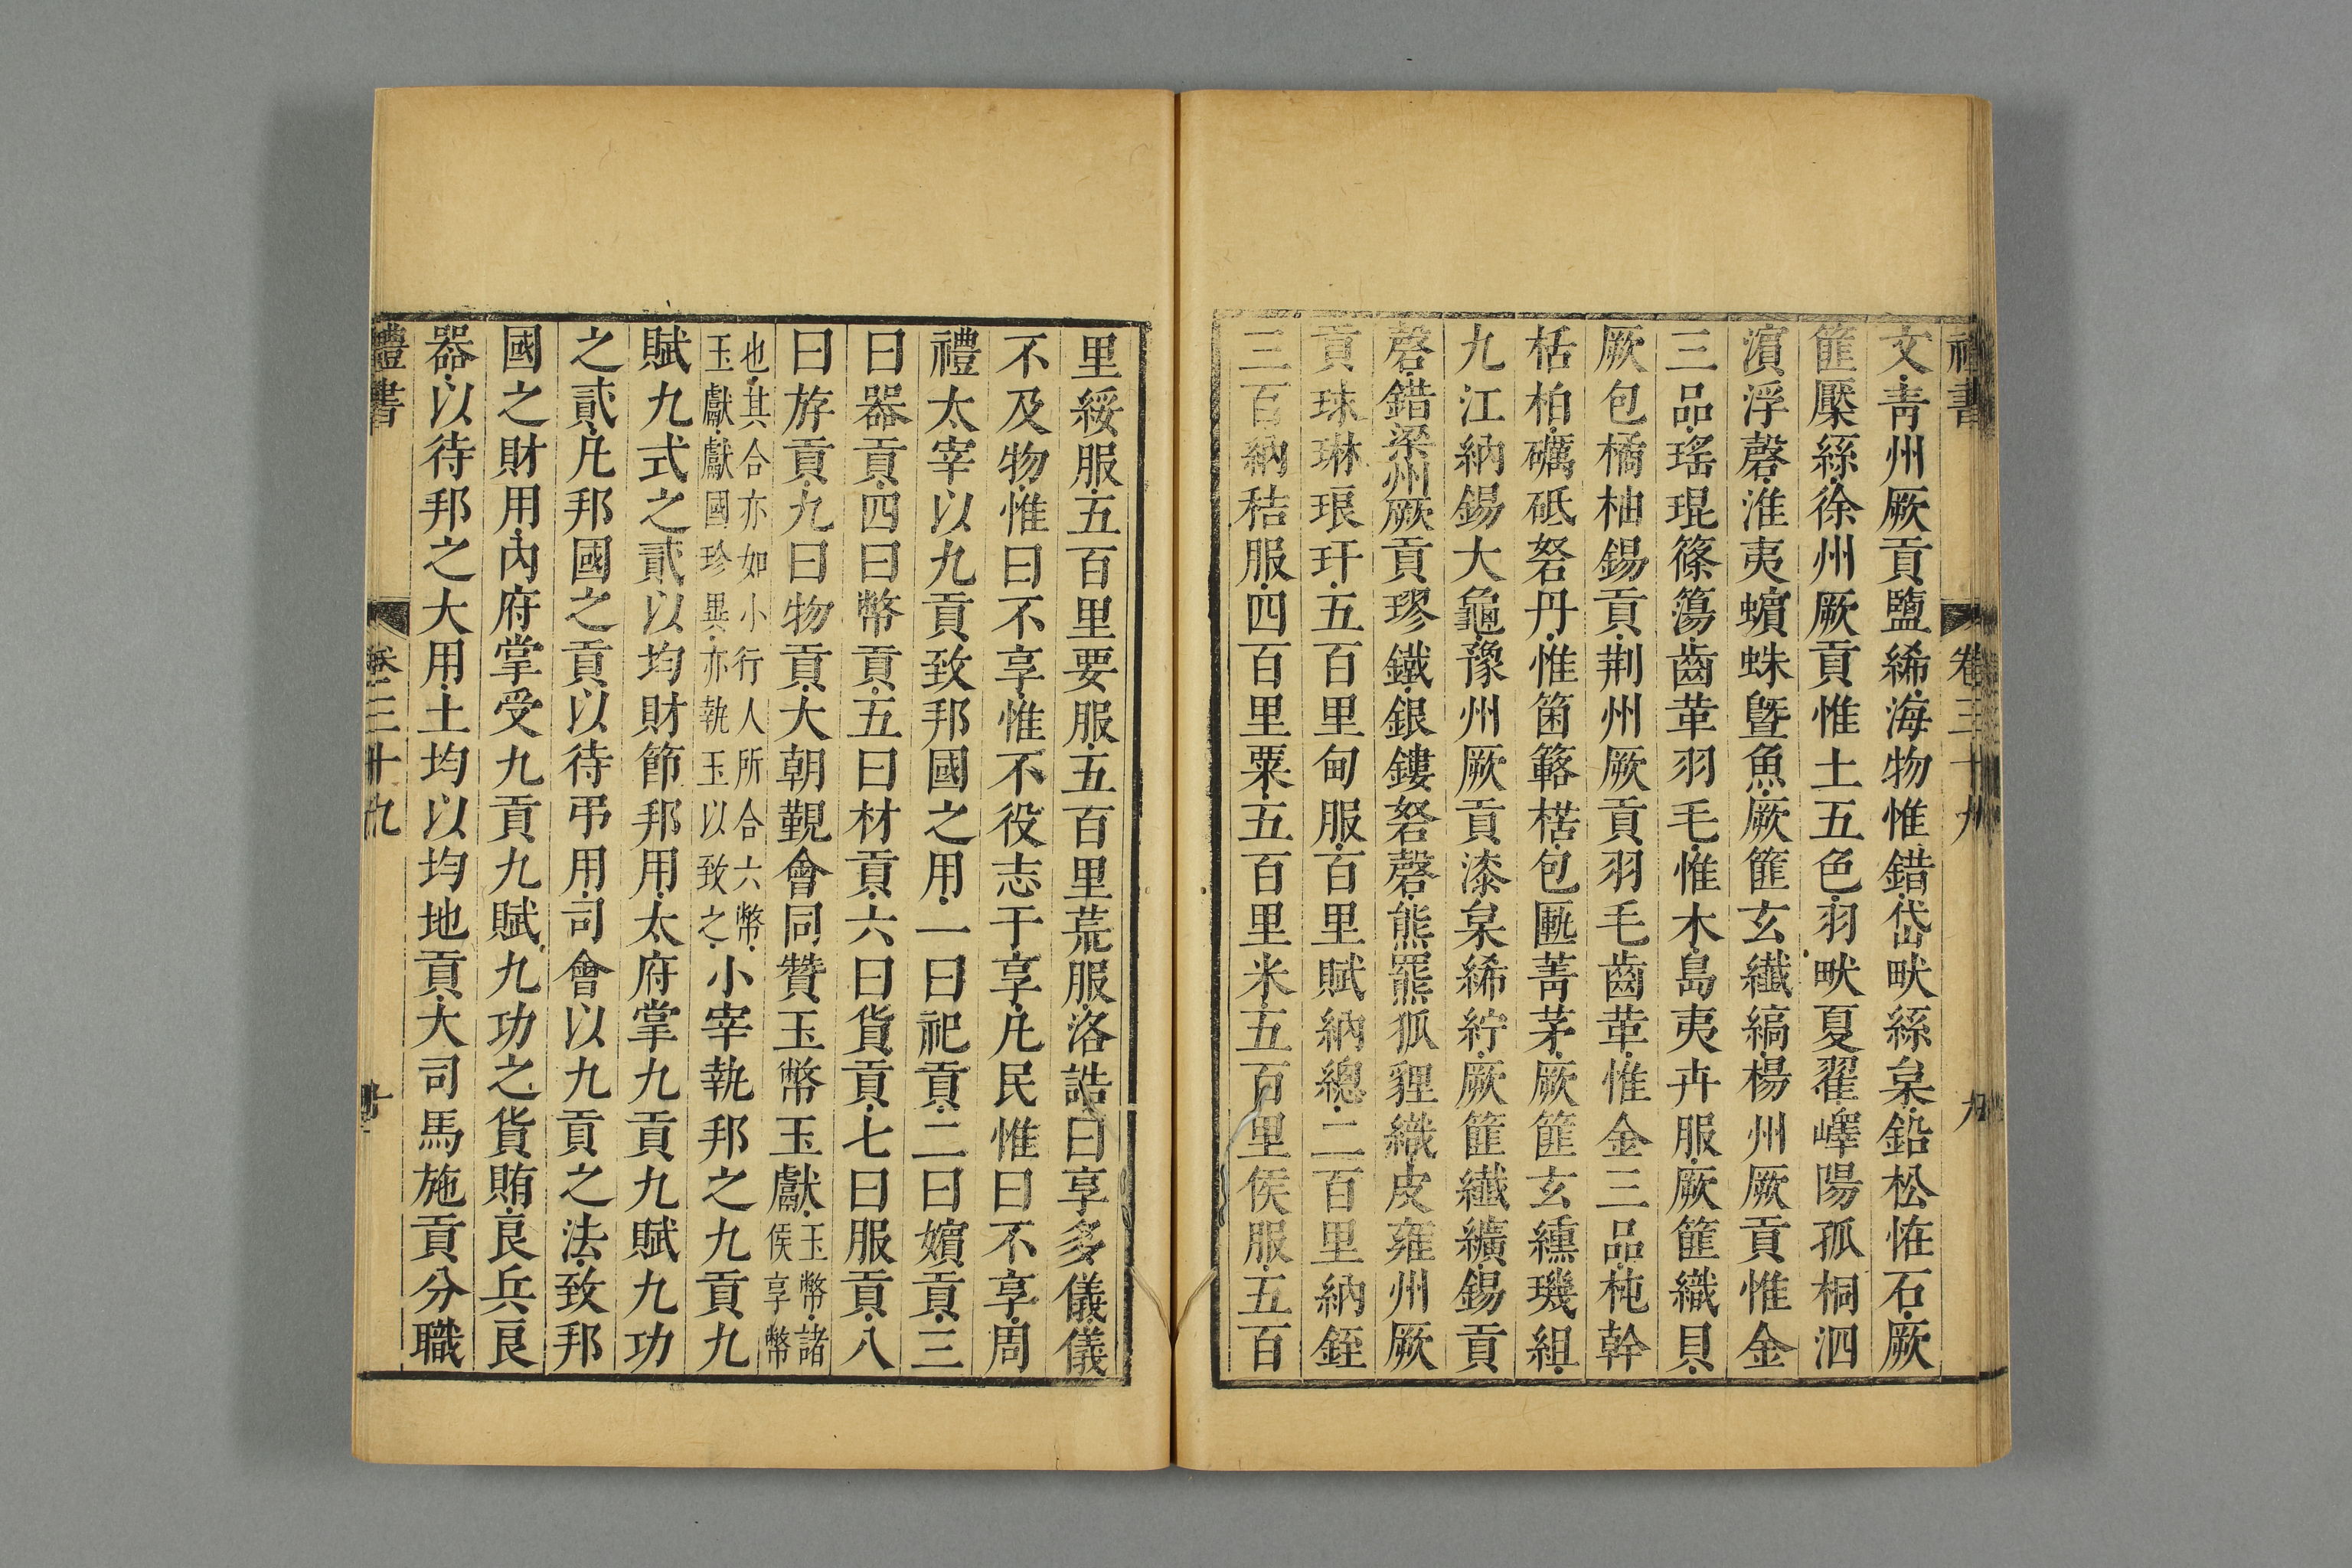 禮書 卷三十九 九
文青州厥貢鹽絺海物惟錯岱畎絲枲鉛松恠石厥
篚檿絲徐州厥貢惟土五色羽畎夏翟嶧陽孤桐泗
濵浮磬淮夷蠙蛛曁魚厥篚玄纎縞楊州厥貢惟金
三品瑤琨篠簜齒革羽毛惟木島夷卉服厥篚織貝
厥包橘柚錫貢荆州厥貢羽毛齒革惟金三品杶幹
栝柏礪砥砮丹惟箘簵楛包匭菁茅厥篚玄纁璣組
九江納錫大龜豫州厥貢漆枲絺紵厥篚纎纊錫貢
磬錯梁州厥貢璆鐵銀鏤砮磬熊羆狐貍織皮雍州厥
貢珠琳琅玕五百里甸服百里賦納總二百里納銍
三百納秸服四百里粟五百里米五百里侯服五百
里綏服五百里要服五百里荒服洛誥曰享多儀儀
不及物惟曰不享惟不役志于享凡民惟曰不享周
禮太宰以九貢致邦國之用一曰祀貢二曰嬪貢三
曰器貢四曰幣貢五曰材貢六曰貨貢七曰服貢八
曰斿貢九曰物貢大朝覲會同贊玉幣玉獻玉幣諸
侯享幣
也其合亦如小行人所合六幣
玉獻獻國珍異亦執玉以致之小宰執邦之九貢九
賦九式之貳以均財節邦用太府掌九貢九賦九功
之貳凡邦國之貢以待弔用司會以九貢之法致邦
國之財用內府掌受九貢九賦九功之貨賄良兵良
器以待邦之大用土均以均地貢大司馬施貢分職
禮書 卷三十九 十